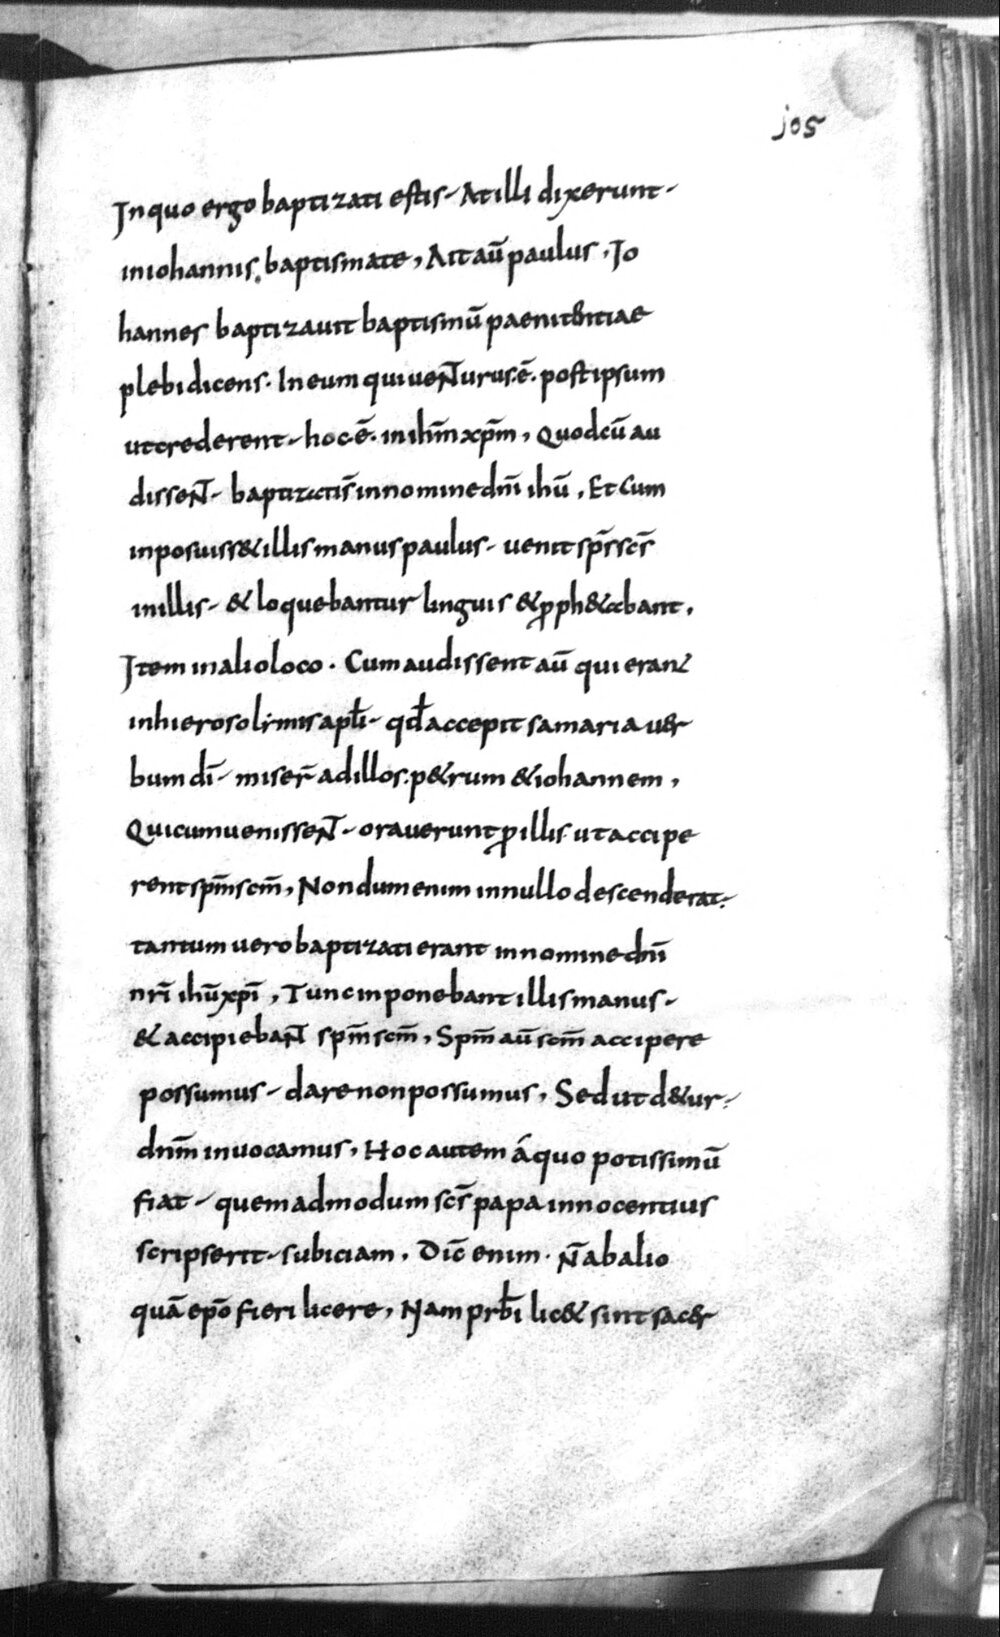 jos
Jn quo ergo baptizati estis · At illi dixerunt ·
in iohannis baptismate, Ait aū paulus, Jo
hannes baptizauit baptismū paenitentiae
plebi dicens. In eum qui uenturus .ē. post ipsum
ut crederent · hoc ē. in ihm̄ xpm̄, Quod cū au
dissent · baptizati s̄ in nomine dnī ihū, Et Cum
inposuiss& illis manus paulus · uenit sp̄s sc̄s
in illis · & loquebantur linguis & proph&abant.
Jtem in alio loco · Cum audissent aū qui erant
in hierosolimis apłi · qđ accepit samaria uer
bum dī · miser̄ ad illos p&rum & iohannem,
Qui cum uenissent · orauerunt pro illis ut accipe
rent spm̄ scm̄, Nondum enim in nullo descenderat ·
tantum uero baptizati erant in nomine dnī
nrī ihū xpī, Tunc inponebant illis manus ·
& accipiebant spm̄ scm̄, Spm̄ aū scm̄ accipere
possumus · dare non possumus, Sed ut d&ur ·
dnm̄ inuocamus, Hoc autem á quo potissimū
fiat · quemadmodum sc̄s papa innocentius
scripserit · subiciam. Dic̄ enim · N̄ ab alio
quā epō fieri licere, Nam prb̄i lic& sint sacer